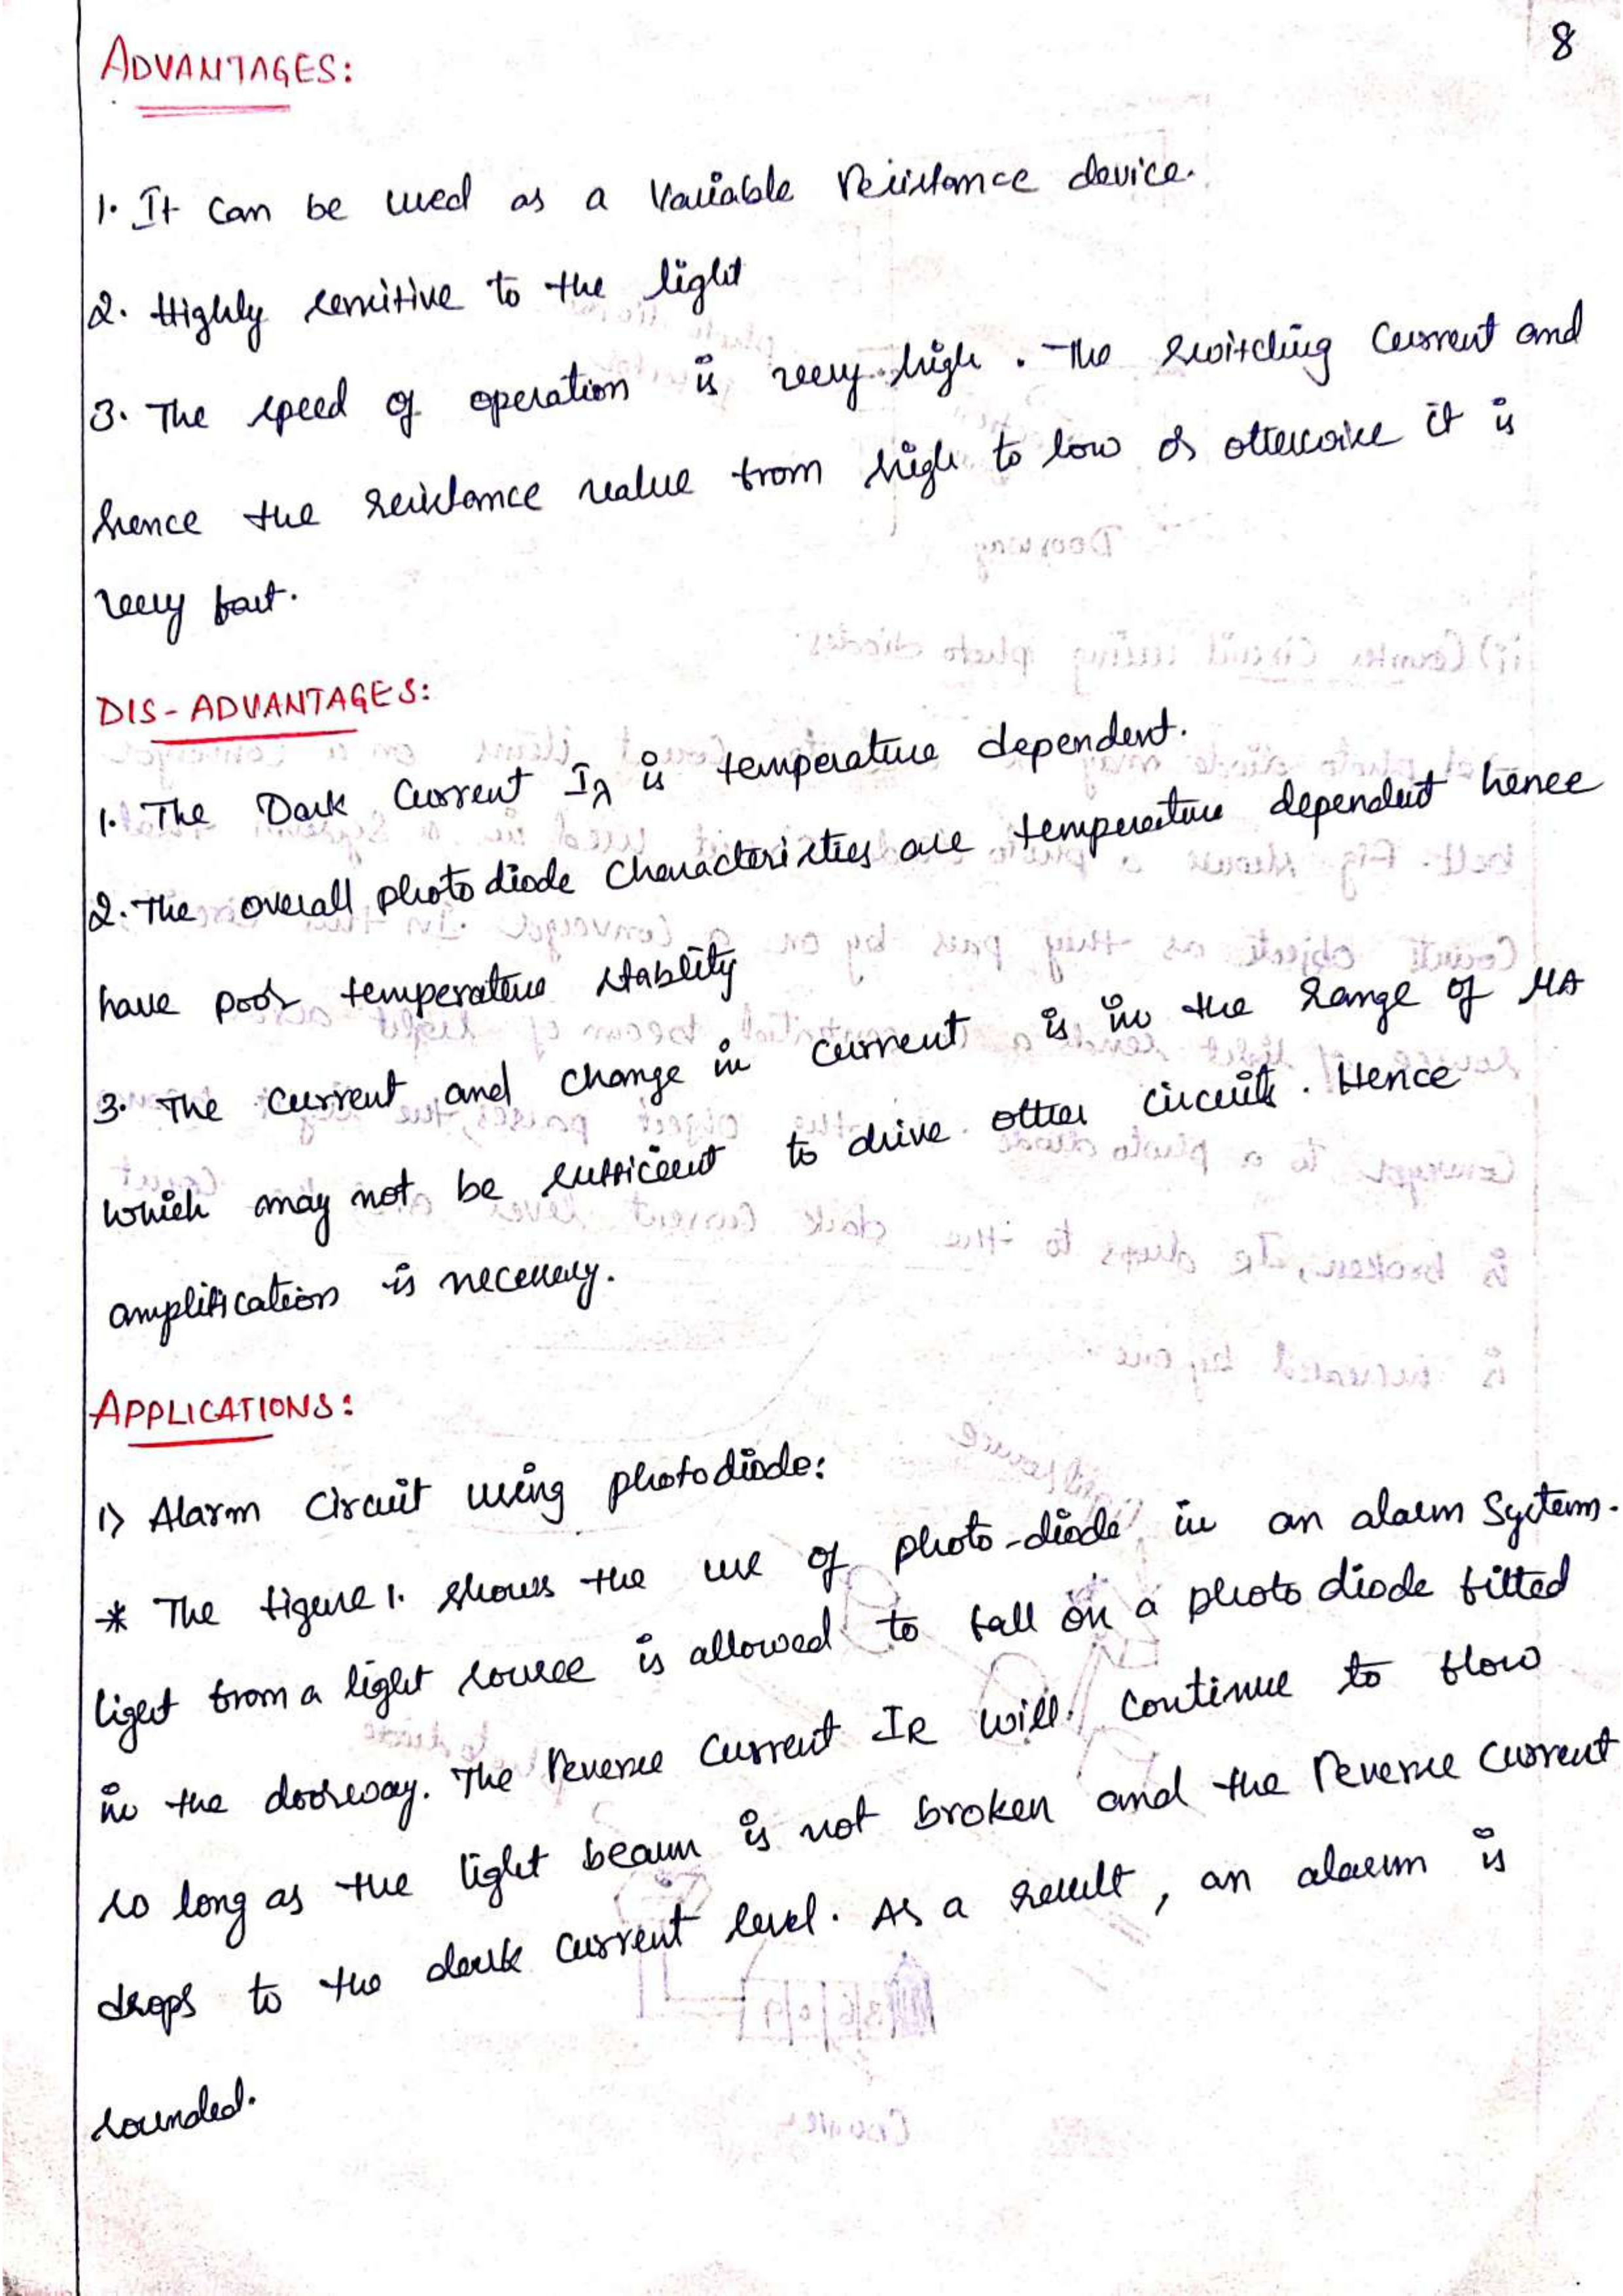 8
ADVANTAGES:
1. It can be used as a variable resistance device.
2. Highly sensitive to the light
3. The speed of operation is very high. The switching current and
hence the resistance value from high to low or otherwise it is
very fast.
DIS-ADVANTAGES:
1. The Dark current Iλ is temperature dependent.
2. The overall photo diode characteristics are temperature dependent hence
have poor temperature stablity
3. The current and change in current is in the range of μA
which may not be sufficient to drive other circuits. Hence
amplification is necessary.
APPLICATIONS:
1) Alarm circuit using photodiode:
* The figure 1. shows the use of photo-diode in an alarm system.
light from a light source is allowed to fall on a photo diode fitted
in the doorway. The reverse current IR will continue to flow
so long as the light beam is not broken and the reverse current
drops to the dark current level. As a result, an alarm is
sounded.